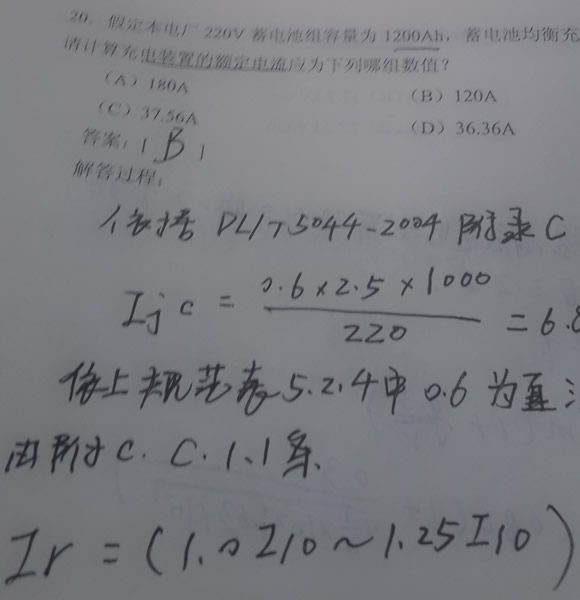 20. 假定本电厂 220V 蓄电池组容量为 1200Ah, 蓄电池均衡充
请计算充电装置的额定电流应为下列哪组数值?
(A) 180A
(B) 120A
(C) 37.56A
(D) 36.36A
答案: [ B ]
解答过程:
依据 DL/T5044-2004 附录 C
Ijc = 0.6×2.5×1000 / 220 = 6.8
依上规范表 5.2.4中 0.6 为直
由附录 C. C.1.1条.
Ir = (1.0I10~1.25I10)